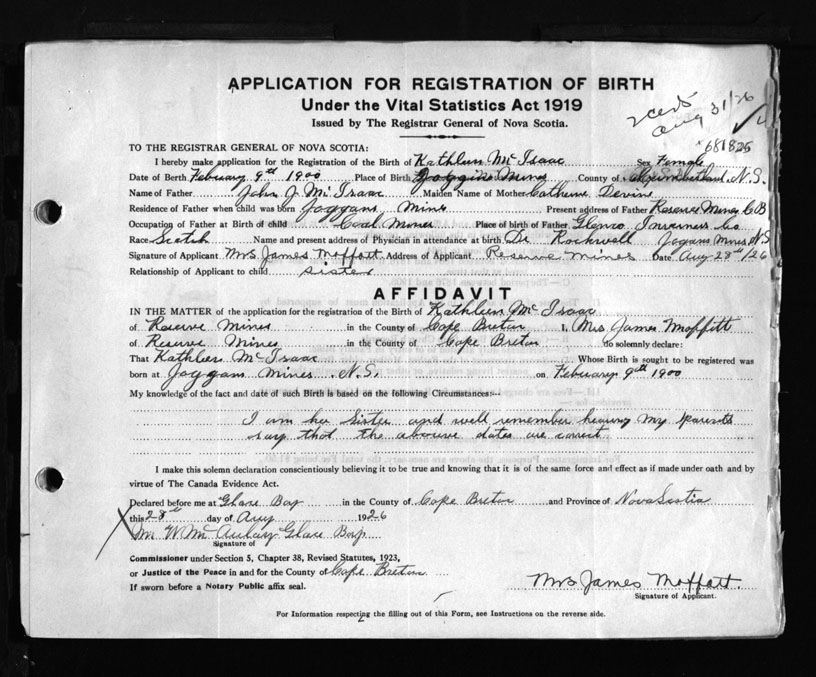 APPLICATION FOR REGISTRATION OF BIRTH
Under the Vital Statistics Act 1919
Issued by The Registrar General of Nova Scotia.
Aug 31/26
681825
TO THE REGISTRAR GENERAL OF NOVA SCOTIA:
I hereby make application for the Registration of the Birth of Kathleen Mc Isaac Sex Female
Date of Birth February 9th 1900 Place of Birth Joggins Mines County of Cumberland N.S.
Name of Father John J. Mc Isaac Maiden Name of Mother Catherine Devine
Residence of Father when child was born Joggans Mines Present address of Father Reserve Mines C B
Occupation of Father at Birth of child Coal Miner Place of birth of Father Glenco Inverness Co
Race Scotch Name and present address of Physician in attendance at birth Dr Rockwell Jogans Mines N S
Signature of Applicant Mrs James Moffatt Address of Applicant Reserve Mines Date Aug 28th /26
Relationship of Applicant to child sister
AFFIDAVIT
IN THE MATTER of the application for the registration of the Birth of Kathleen Mc Isaac
of Reserve Mines in the County of Cape Breton I, Mrs James Moffitt
of Reserve Mines in the County of Cape Breton do solemnly declare:
That Kathleen Mc Isaac Whose Birth is sought to be registered was
born at Joggans Mines N.S. on February 9th 1900
My knowledge of the fact and date of such Birth is based on the following Circumstances:—
I am her Sister and well remember hearing my parents
say that the abouve dates are correct
I make this solemn declaration conscientiously believing it to be true and knowing that it is of the same force and effect as if made under oath and by
virtue of The Canada Evidence Act.
Declared before me at Glace Bay in the County of Cape Breton and Province of Nova Scotia
this 28th day of Aug 1926
X W Mc Aulay Glace Bay
Signature of
Commissioner under Section 5, Chapter 38, Revised Statutes, 1923,
or Justice of the Peace in and for the County of Cape Breton
If sworn before a Notary Public affix seal.
Mrs James Moffatt.
Signature of Applicant.
For Information respecting the filling out of this Form, see Instructions on the reverse side.